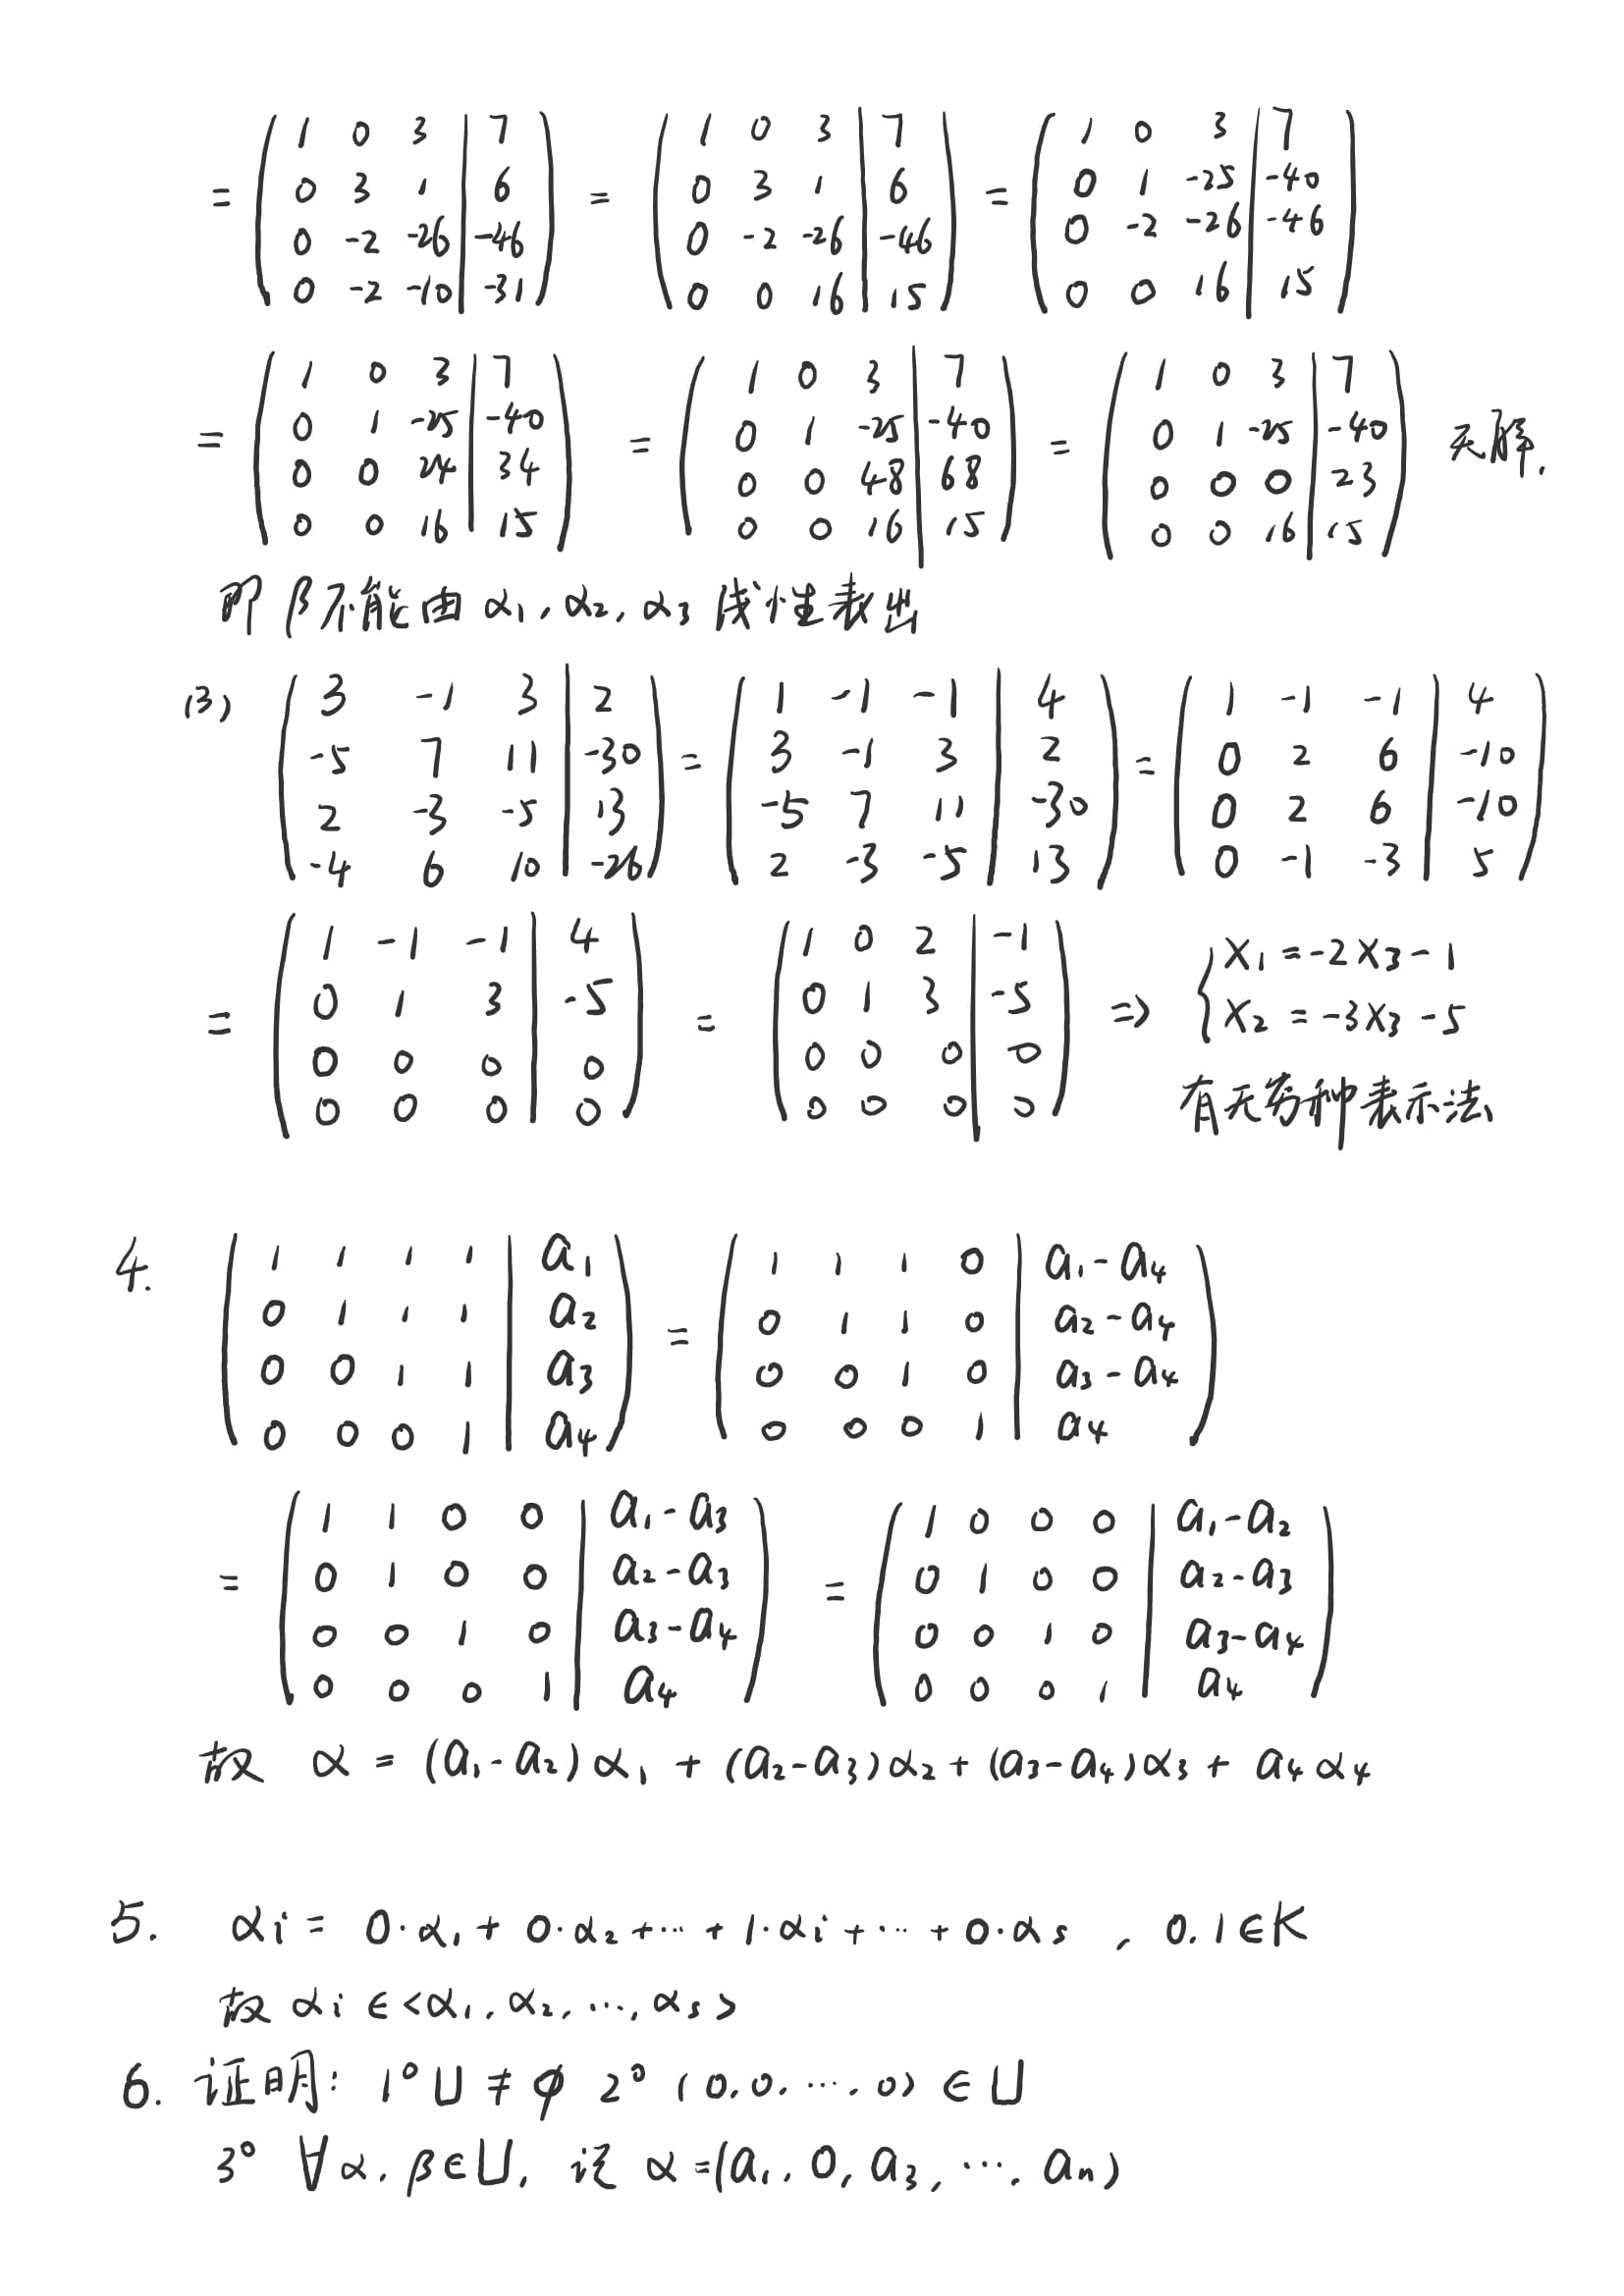 = ( 1 0 3 | 7 ; 0 3 1 | 6 ; 0 -2 -26 | -46 ; 0 -2 -10 | -31 ) = ( 1 0 3 | 7 ; 0 3 1 | 6 ; 0 -2 -26 | -46 ; 0 0 16 | 15 ) = ( 1 0 3 | 7 ; 0 1 -25 | -40 ; 0 -2 -26 | -46 ; 0 0 16 | 15 )
= ( 1 0 3 | 7 ; 0 1 -25 | -40 ; 0 0 24 | 34 ; 0 0 16 | 15 ) = ( 1 0 3 | 7 ; 0 1 -25 | -40 ; 0 0 48 | 68 ; 0 0 16 | 15 ) = ( 1 0 3 | 7 ; 0 1 -25 | -40 ; 0 0 0 | 23 ; 0 0 16 | 15 ) 无解.
即 β不能由 α₁, α₂, α₃ 线性表出
(3) ( 3 -1 3 | 2 ; -5 7 11 | -30 ; 2 -3 -5 | 13 ; -4 6 10 | -26 ) = ( 1 -1 -1 | 4 ; 3 -1 3 | 2 ; -5 7 11 | -30 ; 2 -3 -5 | 13 ) = ( 1 -1 -1 | 4 ; 0 2 6 | -10 ; 0 2 6 | -10 ; 0 -1 -3 | 5 )
= ( 1 -1 -1 | 4 ; 0 1 3 | -5 ; 0 0 0 | 0 ; 0 0 0 | 0 ) = ( 1 0 2 | -1 ; 0 1 3 | -5 ; 0 0 0 | 0 ; 0 0 0 | 0 ) => { X₁ = -2X₃ - 1 ; X₂ = -3X₃ - 5
有无穷种表示法
4. ( 1 1 1 1 | a₁ ; 0 1 1 1 | a₂ ; 0 0 1 1 | a₃ ; 0 0 0 1 | a₄ ) = ( 1 1 1 0 | a₁-a₄ ; 0 1 1 0 | a₂-a₄ ; 0 0 1 0 | a₃-a₄ ; 0 0 0 1 | a₄ )
= ( 1 1 0 0 | a₁-a₃ ; 0 1 0 0 | a₂-a₃ ; 0 0 1 0 | a₃-a₄ ; 0 0 0 1 | a₄ ) = ( 1 0 0 0 | a₁-a₂ ; 0 1 0 0 | a₂-a₃ ; 0 0 1 0 | a₃-a₄ ; 0 0 0 1 | a₄ )
故 α = (a₁-a₂)α₁ + (a₂-a₃)α₂ + (a₃-a₄)α₃ + a₄α₄
5. αi = 0·α₁ + 0·α₂ + ⋯ + 1·αi + ⋯ + 0·αs , 0.1∈K
故 αi ∈ <α₁, α₂, ⋯, αs>
6. 证明: 1° U ≠ ∅ 2° (0,0, ⋯, 0) ∈ U
3° ∀α, β∈U, 设 α =(a₁, 0, a₃, ⋯, aₙ)